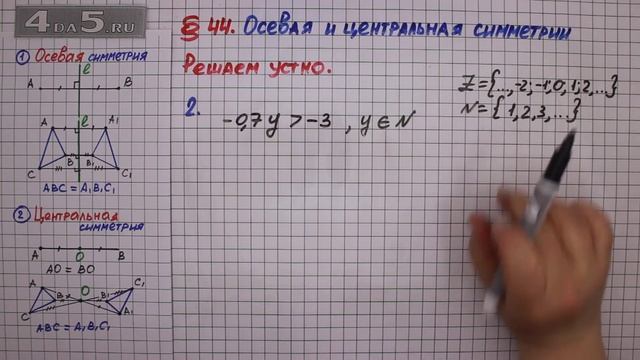 4DA5.RU
§ 44. Осевая и центральная симметрии
Решаем устно.
2.
-0,7y > -3 , y ∈ N
Z = {..., -2; -1; 0, 1; 2, ...}
N = {1, 2, 3, ...}
1 Осевая симметрия
l
A B
l
A A₁
B B₁
C C₁
ABC = A₁B₁C₁
2 Центральная
симметрия
A O B
AO = BO
A O C₁
B B₁
C A₁
ABC = A₁B₁C₁